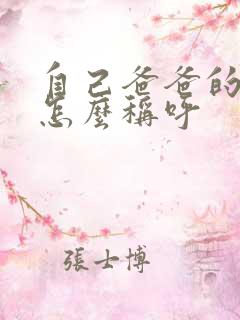 自己爸爸的
怎麼稱呼
張士博